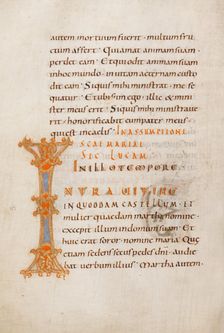 autem mortuum fuerit · multum fru
ctum affert · Qui amat animam suam ·
perdet eam · Et qui odit animam suam
in hoc mundo · in vitam aeternam custo
dit eam · Si quis mihi ministrat · me se
quatur · Et ubi sum ego · illic & mini
ster meus erit · Si quis mihi ministraverit
honorificabit eum pater meus
qui est in caelis · IN ASSUMPTIONE
SCAE MARIAE
SEC LUCAM
IN ILLO TEMPORE
INTRAVIT IHS
IN QUODDAM CASTELLUM · ET
mulier quaedam martha nomine
excepit illum in domum suam · Et
huic erat soror nomine maria · Quae
etiam sedens secus pedes dni · audie
bat verbum illius · Martha autem